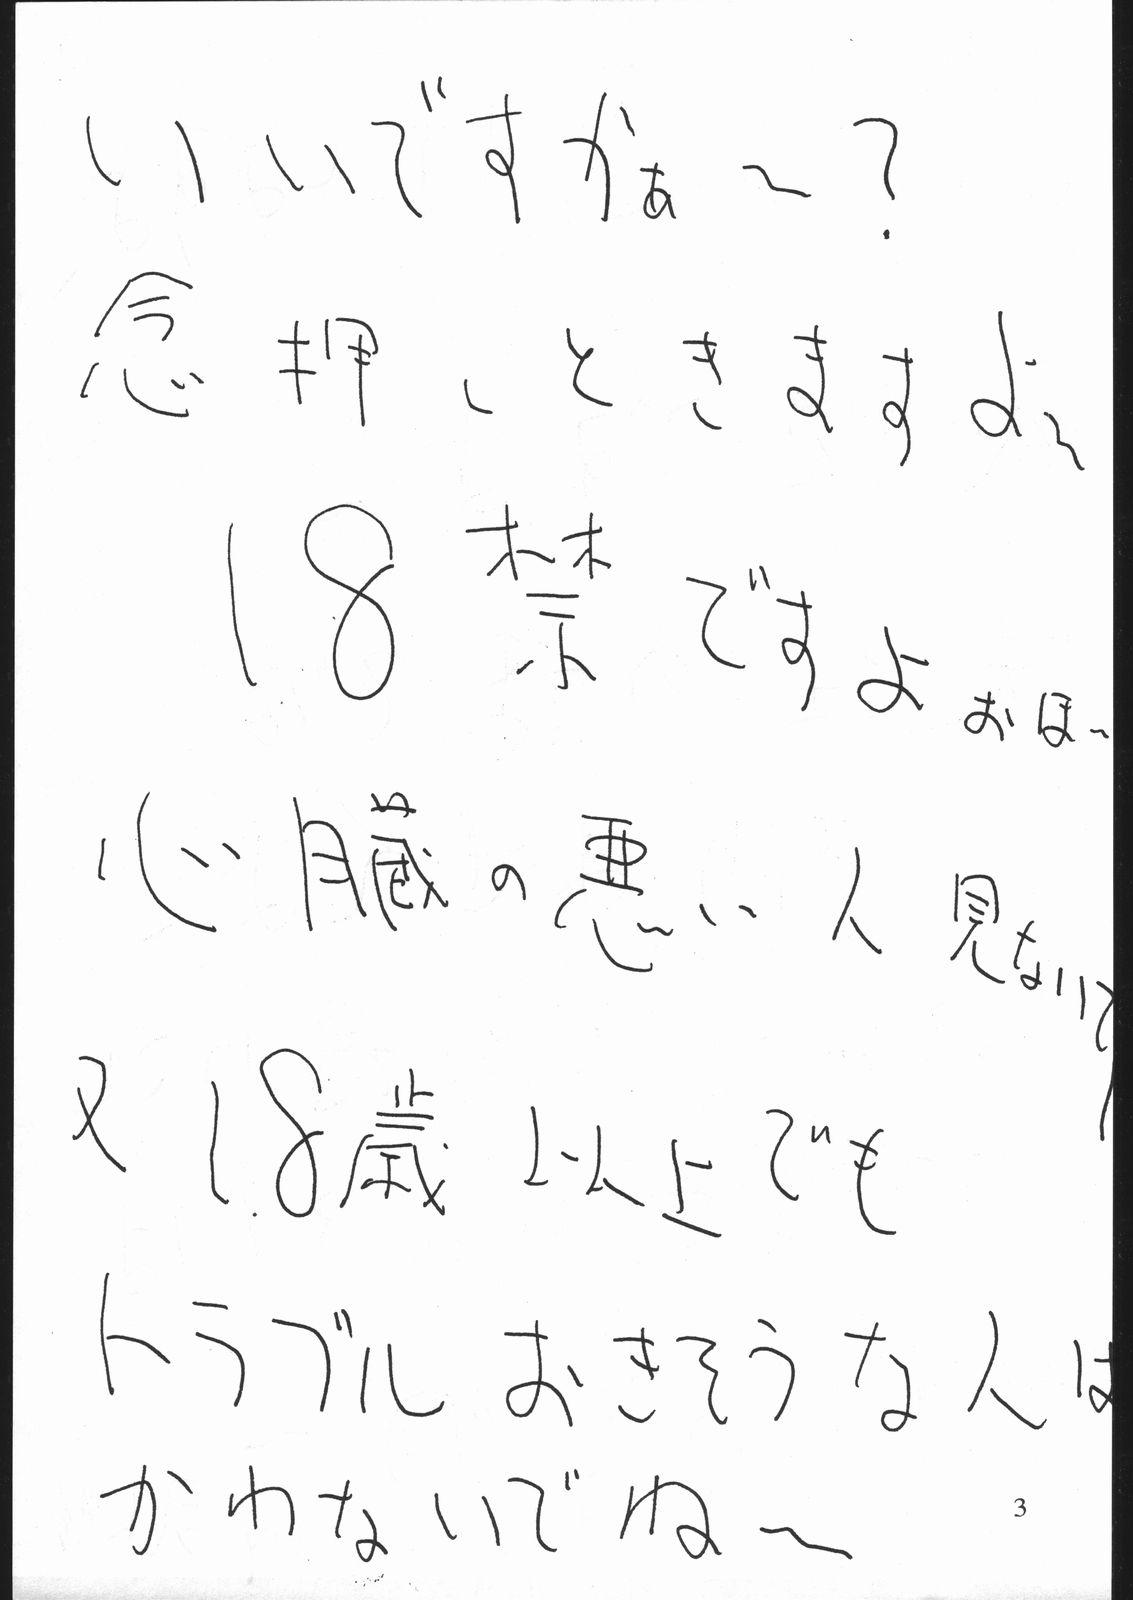 いいですかぁ〜？
念押しときますよ〜
18禁ですよ おほ〜
心臓の悪い人見ないで
又18歳以上でも
トラブルおきそうな人は
かわないでね〜
3